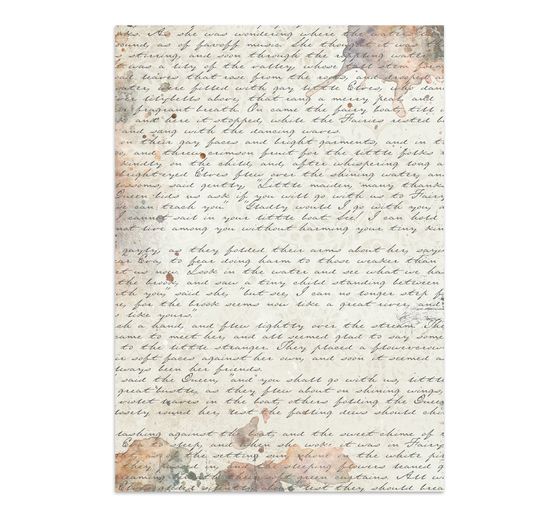 As she was wondering where the water
sound, as of faroff music. She thought it was
stirring, and soon through the
was a city of the valley, whose
leaves that rose from the
water, were filled with gay little Elves, who
over lilybells above, that rang a merry peal
fragrant breath. On came the fairy boat till
and here it stopped, while the Fairies rested
and sang with the dancing waves.
their gay faces and bright garments, and in
and threw crimson fruit for the little folks
kindly on the child, and, after whispering long
bright-eyed Elves flew over the shining water, and
blossoms, said gently, "Little maiden, many thanks
Queen bids us ask if you will go with us to Fairy
can teach you." "Gladly would I go with you,
I cannot sail in your little boat. See! I can hold
not live among you without harming your tiny
gayly, as they folded their arms about her,
Eva, to fear doing harm to those weaker than
us now. Look in the water and see what we
the brook, and saw a tiny child standing between
with you," said she, "but see, I can no longer step
for the brook seems now like a great river, and
like yours."
a hand, and flew lightly over the stream. The
came to meet her, and all seemed glad to say some
to the little stranger. They placed a flowercrown
soft faces against her own, and soon it seemed
always been her friends.
said the Queen, "and you shall go with us, little
great bustle, as they flew about on shining wings,
leaves in the boat, others folding the Queen
closely round her, lest the falling dews should
dashing against the boat, and the sweet chime of
sleep, and when she woke it was in Fairy
the setting sun, about the white
they, from and sleeping flowers leaned
soft green curtains. All
silently lest they should